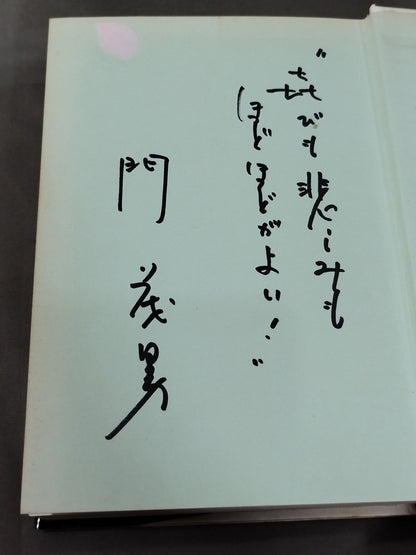 “㐂びも悲しみも
ほどほどがよい!”
門茂男